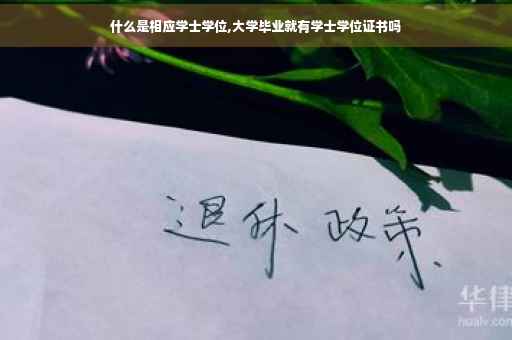 什么是相应学士学位,大学毕业就有学士学位证书吗
退休 政策
华律
hualv.com